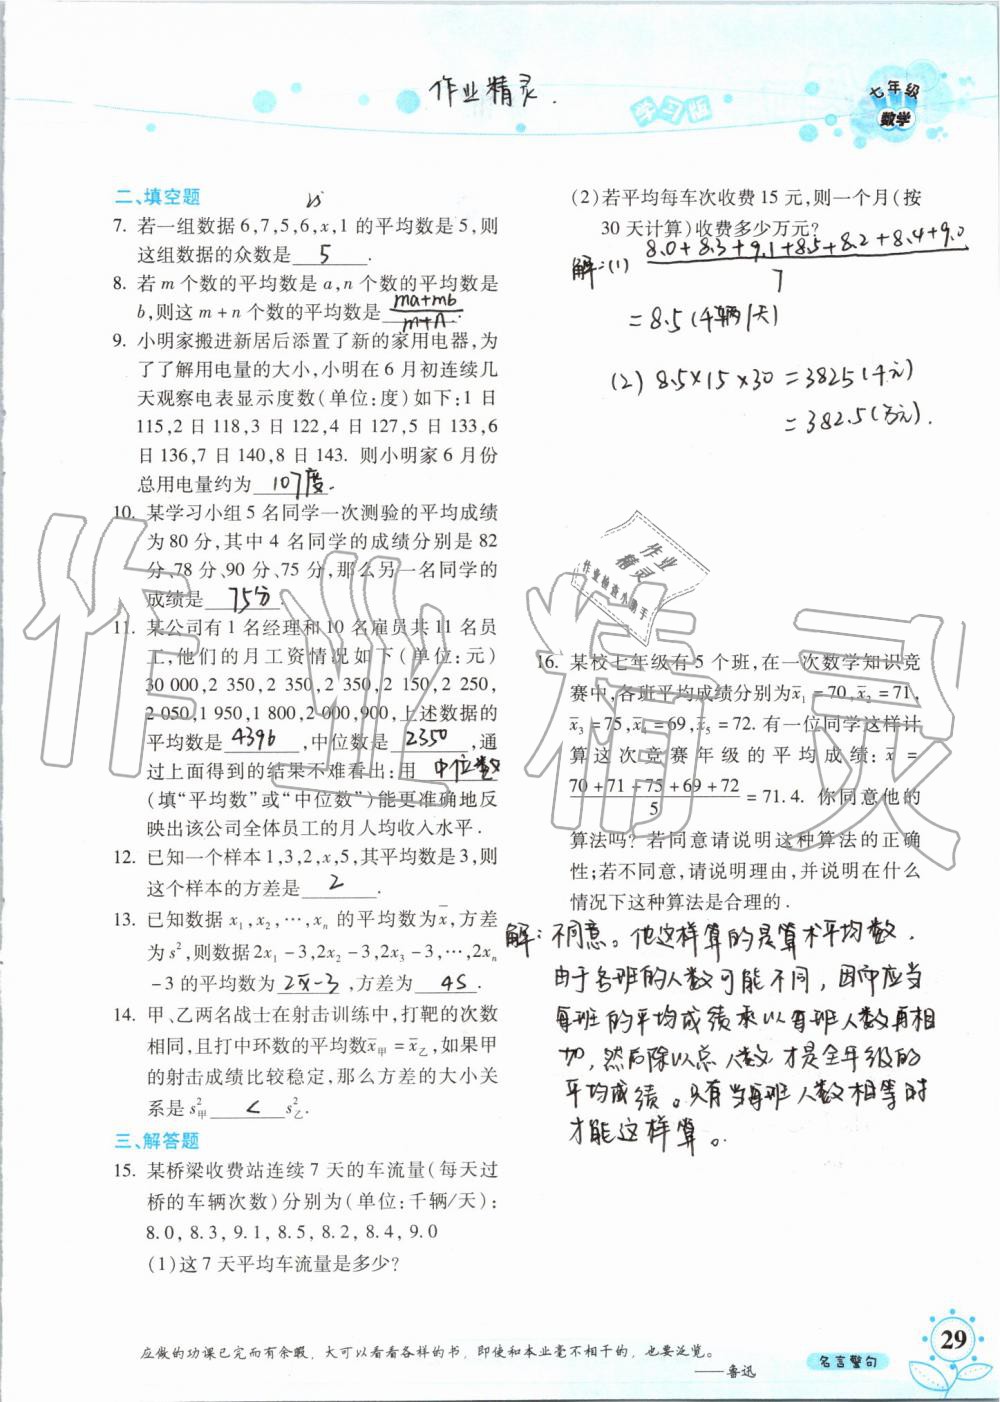 作业精灵.
学习版
七年级
数学
二、填空题
25
7. 若一组数据 6,7,5,6,x,1 的平均数是 5,则
这组数据的众数是 5 .
8. 若 m 个数的平均数是 a,n 个数的平均数是
b,则这 m + n 个数的平均数是 (ma+mb)/(m+n) .
9. 小明家搬进新居后添置了新的家用电器,为
了了解用电量的大小,小明在 6 月初连续几
天观察电表显示度数(单位:度)如下:1 日
115,2 日 118,3 日 122,4 日 127,5 日 133,6
日 136,7 日 140,8 日 143. 则小明家 6 月份
总用电量约为 107度 .
10. 某学习小组 5 名同学一次测验的平均成绩
为 80 分,其中 4 名同学的成绩分别是 82
分、78 分、90 分、75 分,那么另一名同学的
成绩是 75分 .
11. 某公司有 1 名经理和 10 名雇员共 11 名员
工,他们的月工资情况如下(单位:元)
30 000,2 350,2 350,2 350,2 150,2 250,
2 050,1 950,1 800,2 000,900,上述数据的
平均数是 4396 ,中位数是 2350 ,通
过上面得到的结果不难看出:用 中位数
(填“平均数”或“中位数”)能更准确地反
映出该公司全体员工的月人均收入水平 .
12. 已知一个样本 1,3,2,x,5,其平均数是 3,则
这个样本的方差是 2 .
13. 已知数据 x₁,x₂,…,xₙ 的平均数为 x̄,方差
为 s²,则数据 2x₁ − 3,2x₂ − 3,2x₃ − 3,…,2xₙ
− 3 的平均数为 2x̄−3 ,方差为 4S .
14. 甲、乙两名战士在射击训练中,打靶的次数
相同,且打中环数的平均数 x̄甲 = x̄乙,如果甲
的射击成绩比较稳定,那么方差的大小关
系是 s²甲 < s²乙.
三、解答题
15. 某桥梁收费站连续 7 天的车流量(每天过
桥的车辆次数)分别为(单位:千辆/天):
8.0, 8.3, 9.1, 8.5, 8.2, 8.4, 9.0
(1)这 7 天平均车流量是多少?
(2)若平均每车次收费 15 元,则一个月(按
30 天计算)收费多少万元?
解:(1) (8.0+8.3+9.1+8.5+8.2+8.4+9.0)/7
=8.5(千辆/天)
(2) 8.5×15×30=3825(千元)
=382.5(万元).
作业
精灵
作业检查小助手
16. 某校七年级有 5 个班,在一次数学知识竞
赛中,各班平均成绩分别为 x̄₁ = 70,x̄₂ = 71,
x̄₃ = 75,x̄₄ = 69,x̄₅ = 72. 有一位同学这样计
算这次竞赛年级的平均成绩: x̄ =
(70 + 71 + 75 + 69 + 72)/5 = 71.4. 你同意他的
算法吗? 若同意请说明这种算法的正确
性;若不同意,请说明理由,并说明在什么
情况下这种算法是合理的 .
解: 不同意。他这样算的是算术平均数,
由于各班的人数可能不同,因而应当
每班的平均成绩乘以每班人数再相
加,然后除以总人数才是全年级的
平均成绩。只有当每班人数相等时
才能这样算。
作业精灵
应做的功课已完而有余暇,大可以看看各样的书,即使和本业毫不相干的,也要泛览。
——鲁迅
名言警句
29